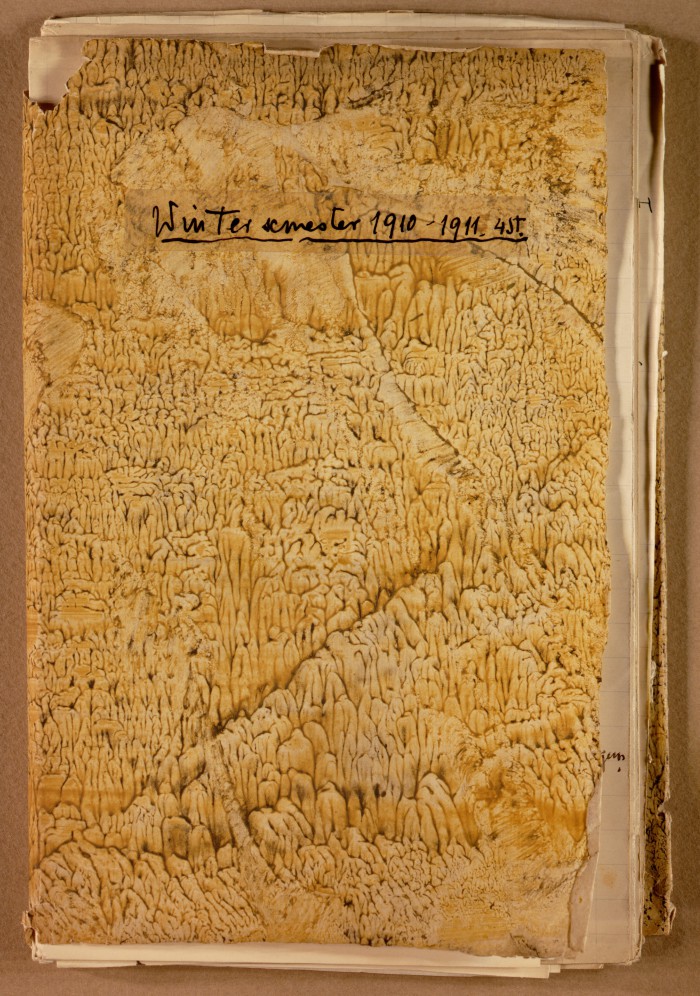 Wintersemester 1910-1911. 4st.